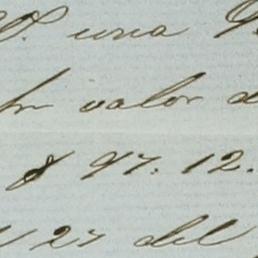 una
por valor d
$ 97.12.
27 del